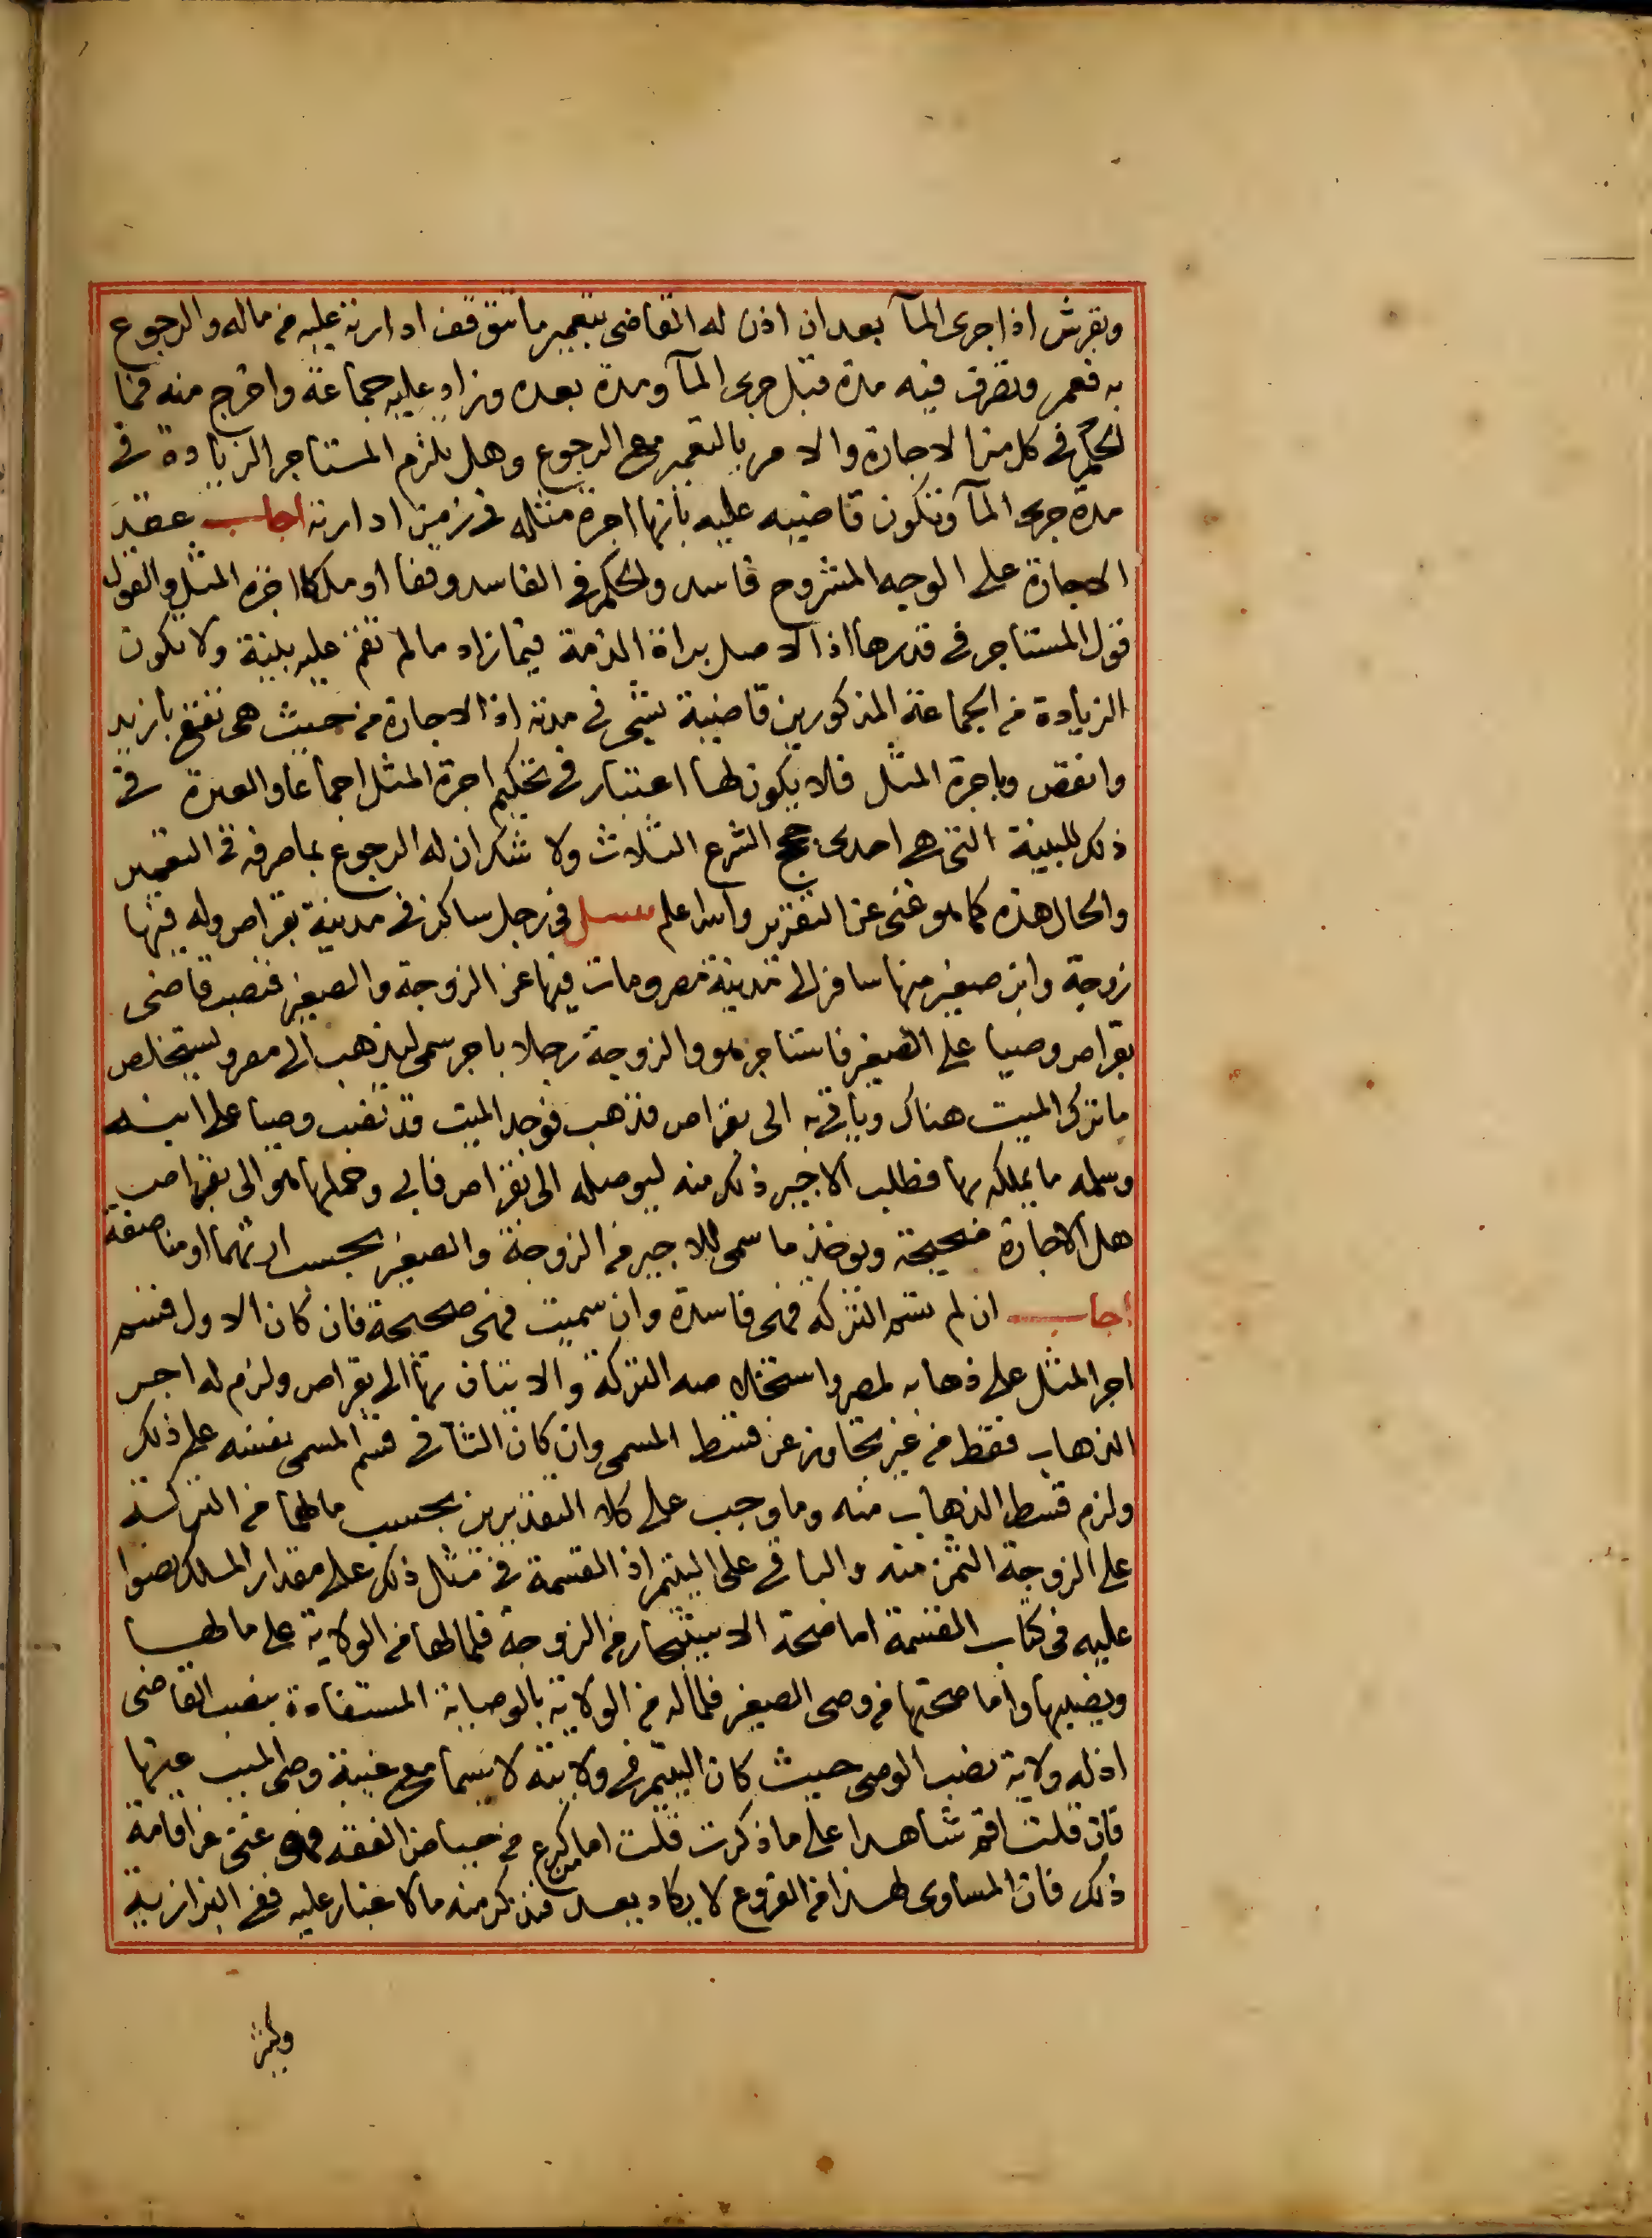 وبقرش اذا جرى المآ بعد ان اذن له القاضى بتعمير ما تتوقف ادارته عليه من ماله والرجوع
به فعمر وتصرف فيه مدة قبل جرى المآ ومدة بعده وزاد عليه جماعة واخرج منه فما
لحكم فى كل من الاجارة والامر بالتعمير مع الرجوع وهل يلزم المستاجر الزيادة فى
مدة جرى المآ وتكون قاضيه عليه بانها اجرة مثله فى زمن ادارته اجاب عقد
الاجارة على الوجه المشروح فاسد ولحكم فى الفاسد وقفا او ملكا اجرة المثل والقول
قول المستاجر فى قدرها اذ الاصل براة الذمة فيما زاد ما لم تقم عليه بينة ولا تكون
الزيادة من الجماعة المذكورين قاضية بشى فى مدته اذ الاجارة من حيث هى تقع بازيد
وانقص وباجرة المثل فلا يكون لها اعتبار فى تحكيم اجرة المثل اجماعا والعبرة فى
ذلك للبينة التى هى احدى حجج الشرع الثلاث ولا شك ان له الرجوع بما صرفه فى التعمير
والحال هذه كما هو غنى عن التقرير والله اعلم سئل فى رجل ساكن فى مدينة بقراص وله فيها
زوجة وابن صغير منها سافر الى مدينة مصر ومات فيها عن الزوجة والصغير فنصب قاضى
بقراص وصيا على الصغير فاستاجر هو والزوجة رجلا باجر سمى ليذهب الى مصر وليستخلص
ما ترك الميت هناك وياتى به الى بقراص فذهب فوجد الميت قد نصب وصيا على ابنه
وسلمه ما يملكه بها فطلب الاجير ذلك منه ليوصله الى بقراص فابى وحملها هو الى بقراص
هل الاجارة صحيحة ويوخذ ما سمى للاجير من الزوجة والصغير بحسب ارثهما او مناصفة
اجاب ان لم تسم التركة فهى فاسدة وان سميت فهى صحيحة فان كان الاول قسم
اجر المثل على ذهابه لمصر واستخلاصه التركة والاتيان بها الى بقراص ولزم له اجر
الذهاب فقط من غير تجاوز عن قسط المسمى وان كان الثانى قسم المسمى نفسه على ذلك
ولزم قسط الذهاب منه وما وجب على كلا التقديرين بحسب مالهما من التركة
على الزوجة الثمن منه والباقى على اليتيم اذ القسمة فى مثل ذلك على مقدار الملك نصوا
عليه فى كتاب القسمة اما صحة الاستيجار من الزوجة فلما لها من الولاية على مالها
ونصيبها واما صحتها من وصى الصغير فلما له من الولاية بالوصاية المستفادة بنصب القاضى
اذ له ولاية نصب الوصى حيث كان اليتيم فى ولايته لا سيما مع غيبة وصى الميت عنها
فان قلت اقم شاهدا على ما ذكرت قلت اما من كرع من حياض الفقه فهو غنى عن اقامة
ذلك فان المساوى لهذا من الفروع لا يكاد يعد فنذكر منه ما لا غبار عليه ففى البزازية